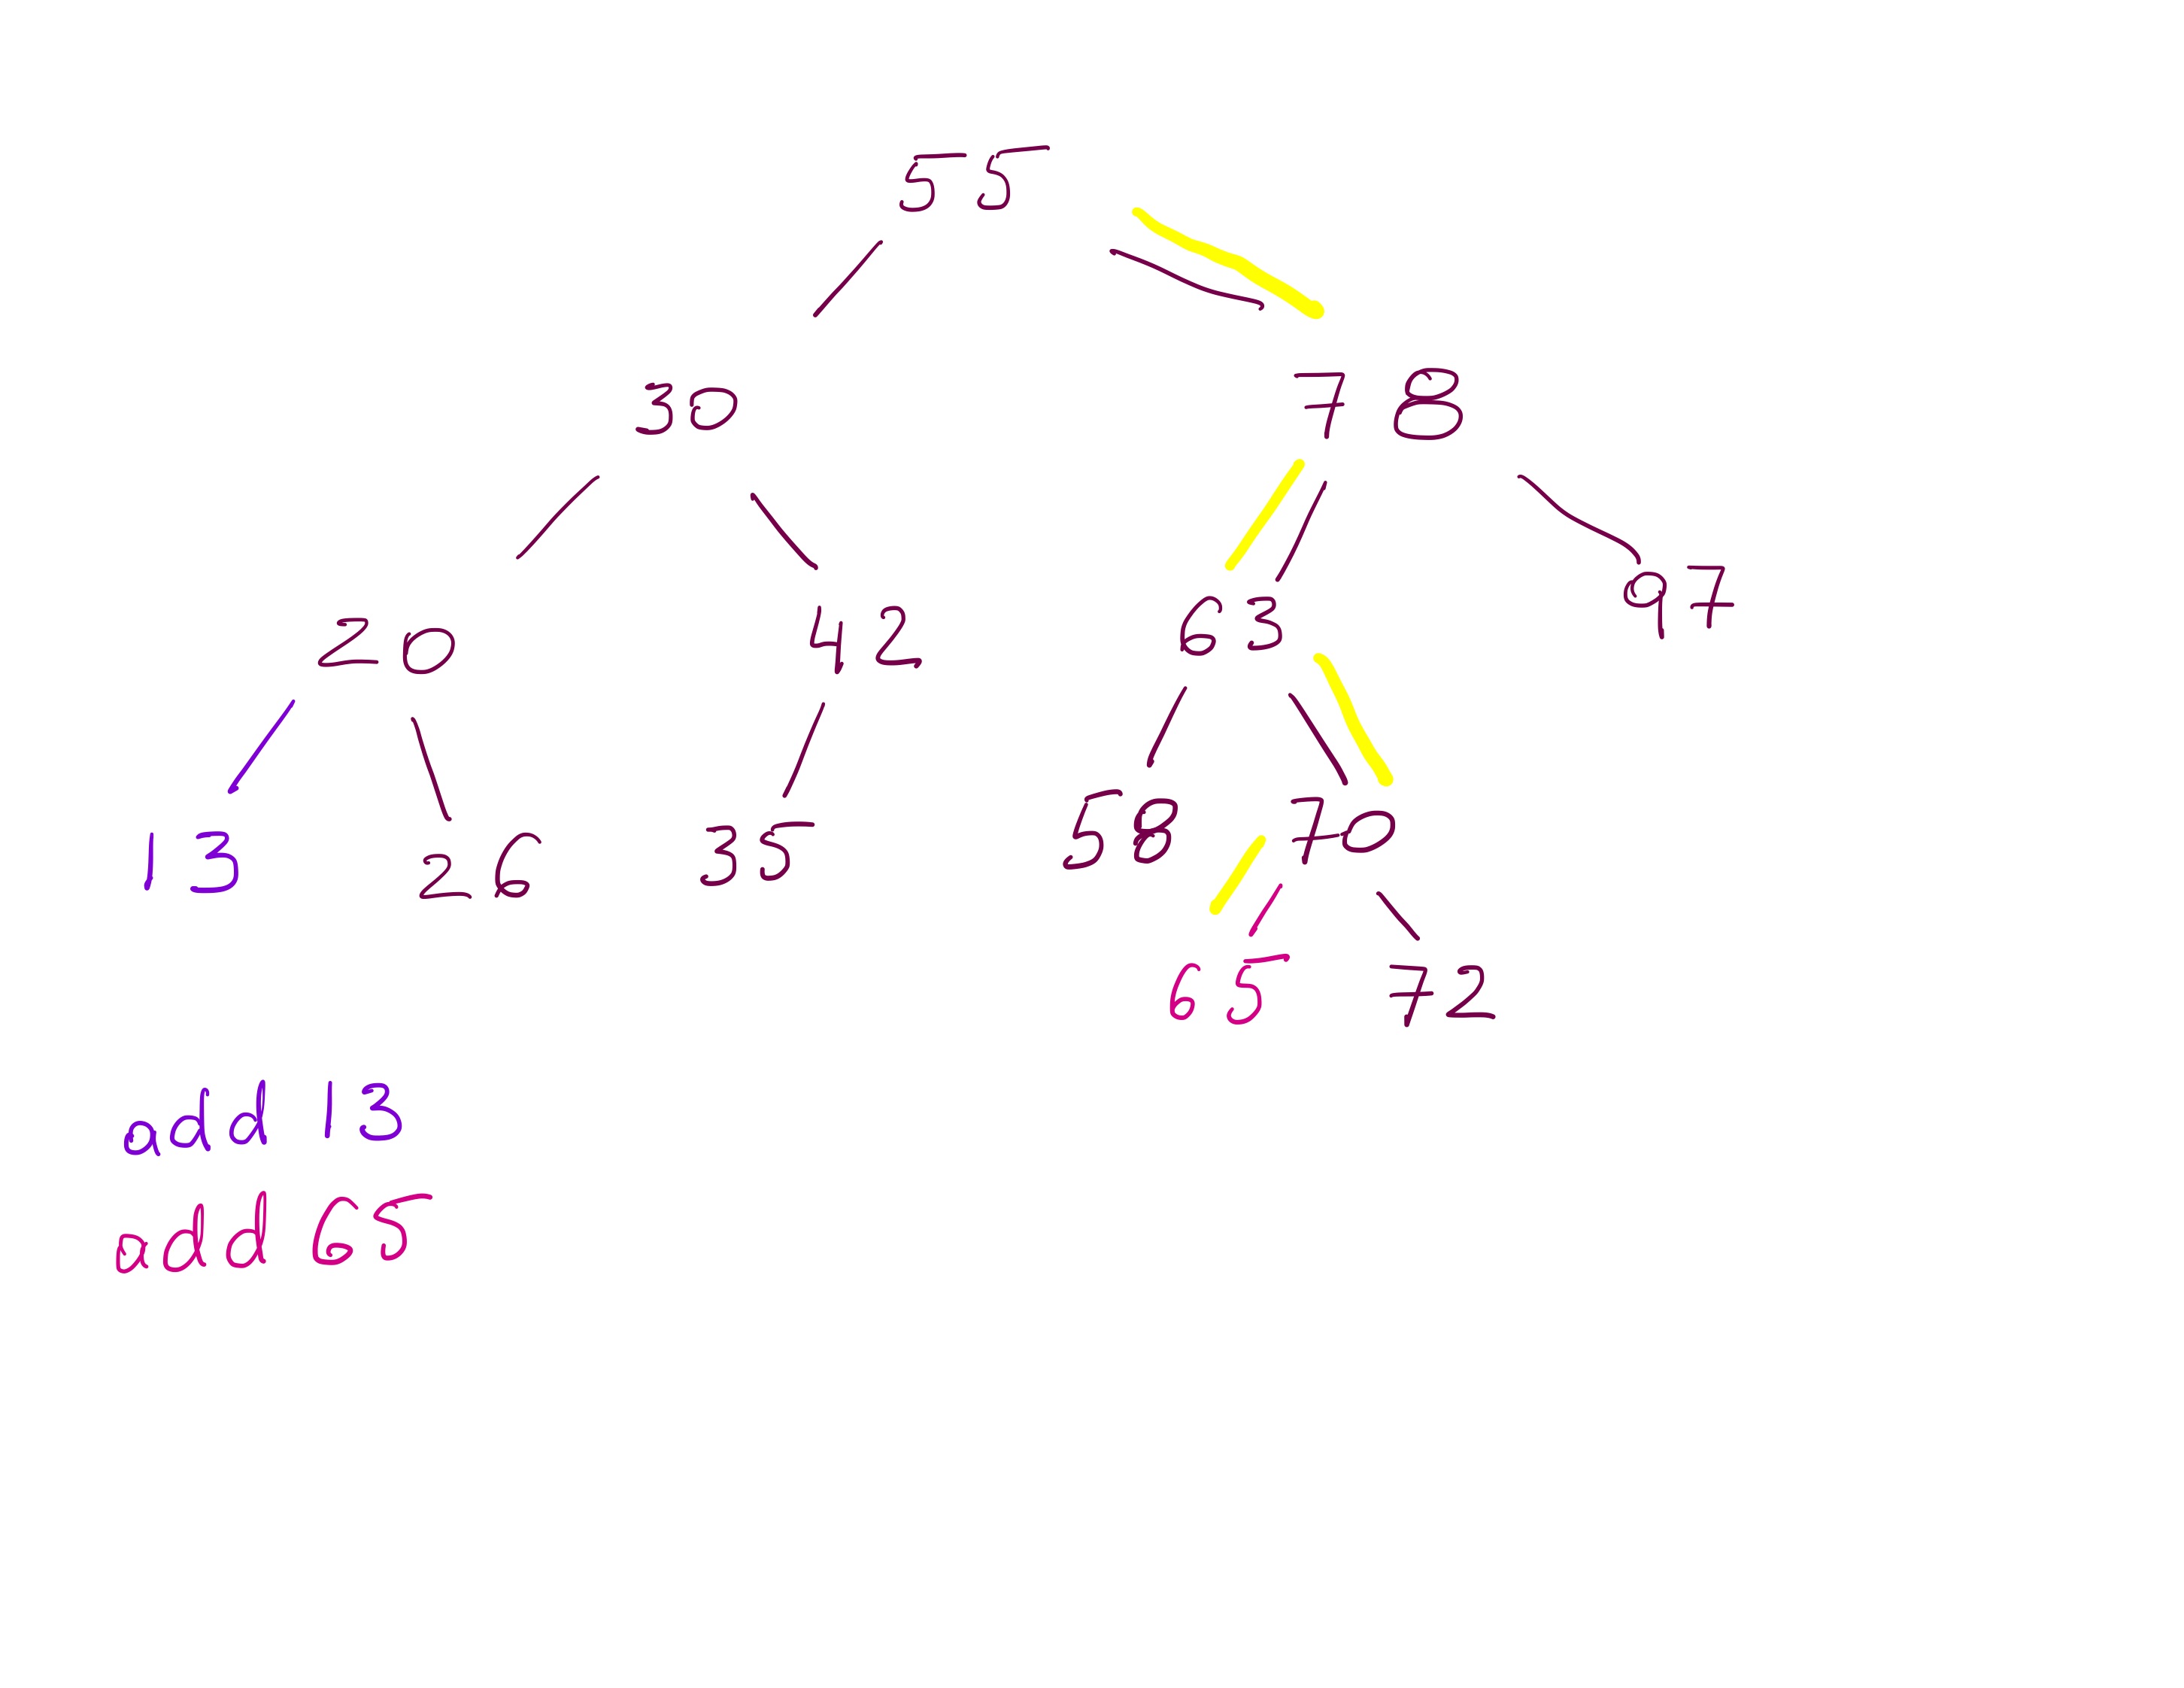 55
30 78
20 42 63 97
13 26 35 58 70
65 72
add 13
add 65